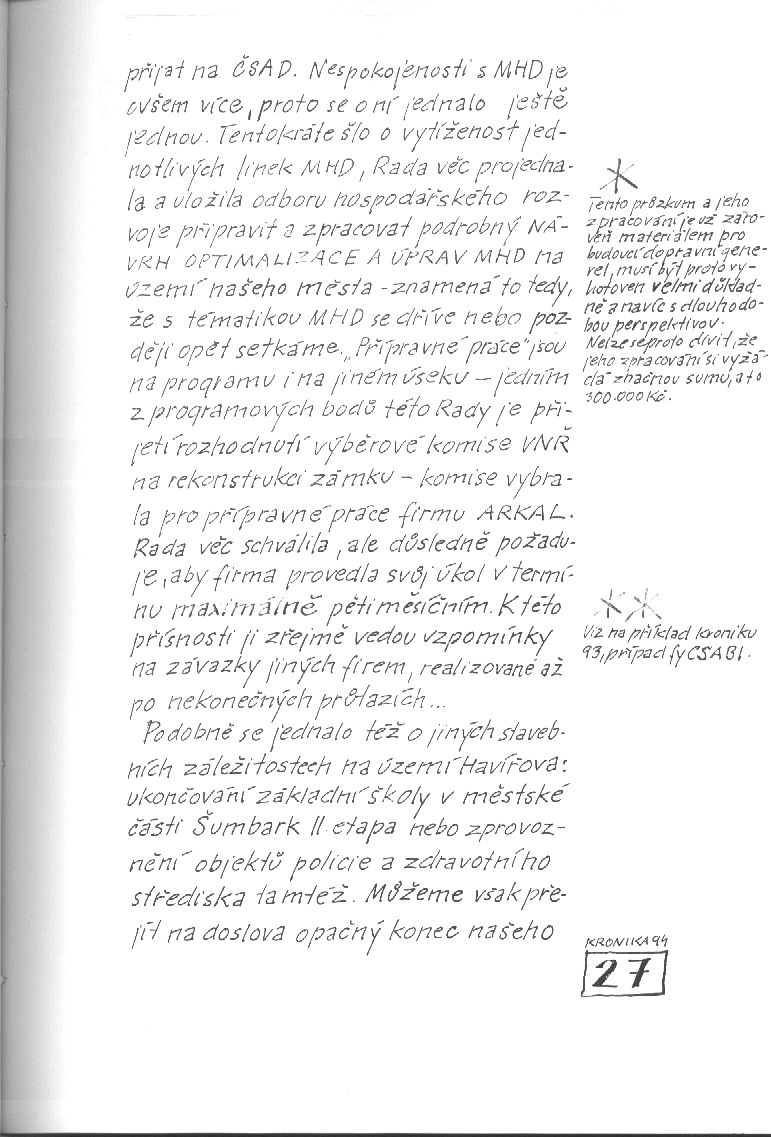 přijat na ČSAD. Nespokojenosti s MHD je
ovšem více, proto se o ní jednalo ještě
jednou. Tentokráte šlo o vytíženost jed-
notlivých linek MHD, Rada věc projedna-
la a uložila odboru hospodářského roz-
voje připravit a zpracovat podrobný NÁ-
VRH OPTIMALIZACE A ÚPRAV MHD na
území našeho města - znamená to tedy,
že s tématikou MHD se dříve nebo poz-
ději opět setkáme. „Přípravné práce" jsou
na programu i na jiném úseku – jedním
z programových bodů této Rady je při-
jetí rozhodnutí výběrové komise VNŘ
na rekonstrukci zámku – komise vybra-
la pro přípravné práce firmu ARKAL.
Rada věc schválila, ale důsledně požadu-
je, aby firma provedla svůj úkol v termí-
nu maximálně pětiměsíčním. K této
přísnosti ji zřejmě vedou vzpomínky
na závazky jiných firem, realizované až
po nekonečných průtazích...
Podobně se jednalo též o jiných staveb-
ních záležitostech na území Havířova:
ukončování základní školy v městské
části Šumbark II etapa nebo zprovoz-
nění objektů policie a zdravotního
střediska tamtéž. Můžeme však pře-
jít na doslova opačný konec našeho
*
Tento průzkum a jeho
zpracování je už záro-
veň materiálem pro
budoucí dopravní gene-
rel, musí být proto vy-
hotoven velmi důklad-
ně a navíc s dlouhodo-
bou perspektivou.
Nelze se proto divit, že
jeho zpracování si vyžá-
dá značnou sumu, a to
300.000 Kč.
**
Viz na příklad kroniku
93, případ fy CSABI.
KRONIKA 94
27